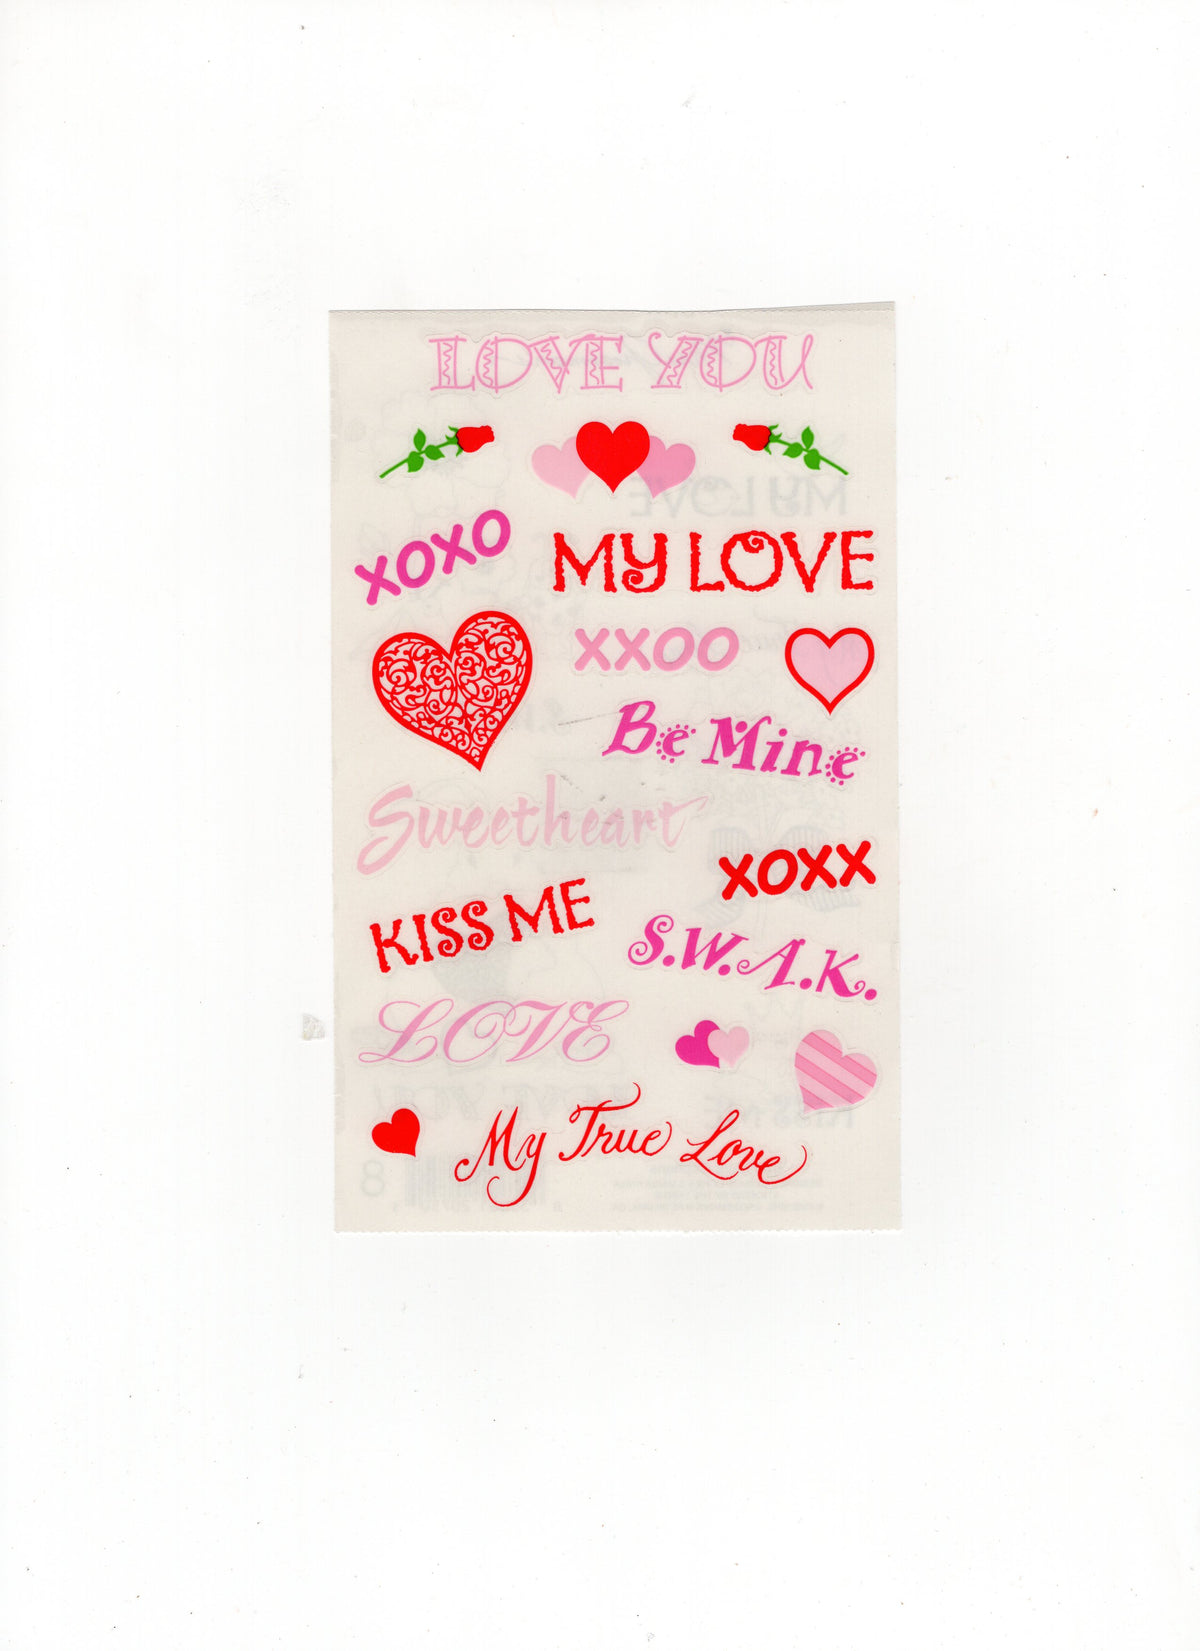 LOVE YOU
XOXO
MY LOVE
XXOO
Be Mine
Sweetheart
XOXX
KISS ME
S.W.A.K.
LOVE
My True Love